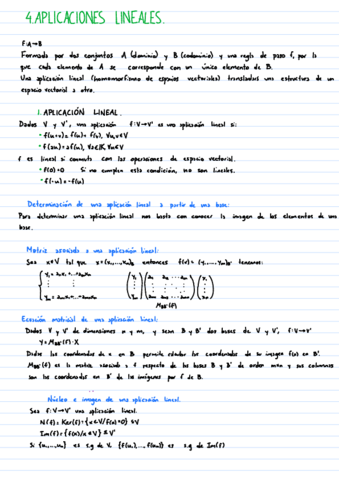 4.APLICACIONES LINEALES.
F:A→B
Formada por dos conjuntos A (dominio) y B (codominio) y una regla de paso f, por la
que cada elemento de A se corresponde con un único elemento de B.
Una aplicación lineal (homomorfismo de espacios vectoriales) translada una estructura de un
espacio vectorial a otro.
1. APLICACIÓN LINEAL.
Dados V y V', una aplicación f:V→V' es una aplicación lineal si:
f es lineal si conmuta con las operaciones de espacio vectorial.
• f(0)=0 Si no cumplen esta condición, no son lineales.
• f(-u)=-f(u)
Determinación de una aplicación lineal a partir de una base:
Para determinar una aplicación lineal nos basta con conocer la imagen de los elementos de una
base.
Matriz asociada a una aplicación lineal:
Ecuación matricial de una aplicación lineal:
Dados V y V' de dimensiones n y m, y sean B y B' dos bases de V y V', f:V→V'
Dadas las coordenadas de x en B permite calcular las coordenadas de su imagen f(x) en B'.
es la matriz asociada a f respecto de las bases B y B' de orden mxn y sus columnas
son las coordenadas en B' de las imágenes por f de B.
Núcleo e imagen de una aplicación lineal.
Sea f:V→V' una aplicación lineal.